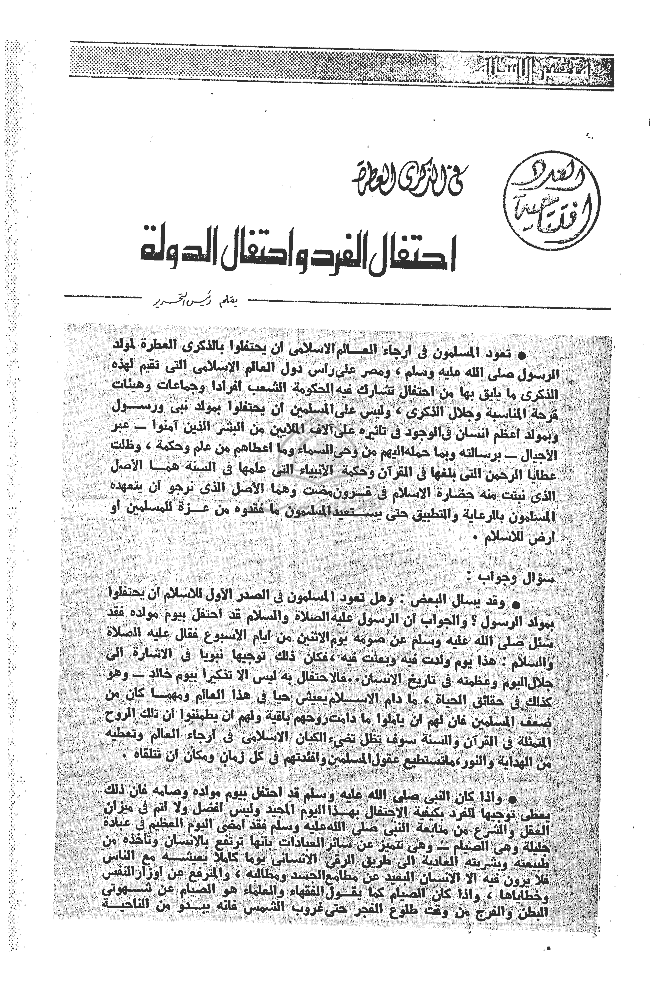 منبر الاسلام
العدد
افتتاحية
فى الذكرى العطرة
احتفال الفرد واحتفال الدولة
بقلم رئيس التحرير
● تعود المسلمون فى ارجاء العالم الاسلامى ان يحتفلوا بالذكرى العطرة لمولد
الرسول صلى الله عليه وسلم ، ومصر على راس دول العالم الاسلامى التى تقيم لهذه
الذكرى ما يليق بها من احتفال تشارك فيه الحكومة الشعب افرادا وجماعات وهيئات
فرحة المناسبة وجلال الذكرى ، وليس على المسلمين ان يحتفلوا بمولد نبى ورسول
وبمولد اعظم انسان فى الوجود فى تاثيره على آلاف الملايين من البشر الذين آمنوا — عبر
الاجيال — برسالته وبما حمله اليهم من وحى السماء وما اعطاهم من علم وحكمة ، وظلت
عطايا الرحمن التى بلغها فى القرآن وحكمة الأنبياء التى علمها فى السنة همـا الأصل
الذى نبتت منه حضارة الاسلام فى قـرون مضت وهما الأصل الذى نرجو ان يتعهده
المسلمون بالرعاية والتطبيق حتى يستعيد المسلمون ما فقدوه من عـزة للمسلمين او
ارض للاسلام .
سؤال وجواب :
● وقد يسال البعض : وهل تعود المسلمون فى الصدر الاول للاسلام ان يحتفلوا
بمولد الرسول ؟ والجواب ان الرسول عليه الصلاة والسلام قد احتفل بيوم مولده فقد
سئل صلى الله عليه وسلم عن صومه يوم الاثنين من ايام الاسبوع فقال عليه الصلاة
والسلام : هذا يوم ولدت فيه وبعثت فيه ، فكان ذلك توجيها نبويا فى الاشارة الى
جلال اليوم وعظمته فى تاريخ الانسان.. فالاحتفال به ليس الا تذكيرا بيوم خالد — وهو
كذلك فى حقائق الحياة ، ما دام الاسـلام يعيش حيا فى هذا العالم ومهما كان من
ضعف المسلمين فان لهم ان ياملوا ما دامت روحهم باقية ولهم ان يطمئنوا ان تلك الروح
المتمثلة فى القرآن والسنة سوف تظل تضىء الكيان الاسلامى فى ارجاء العالم وتعطيه
من الهداية والنور، ما تستطيع عقول المسلمين وافئدتهم فى كل زمان ومكان ان تتلقاه .
● واذا كان النبى صلى الله عليه وسلم قد احتفل بيوم مولده وصامه فان ذلك
يعطى توجيها للفرد بكيفية الاحتفال بهـذا اليوم المجيد وليس افضل ولا اتم فى ميزان
العقل والشرع من متابعة النبى صلى الله عليه وسلم فقد امضى اليوم العظيم فى عبادة
جليلة وهى الصيام — وهى تتميز عن سائر العبادات بانها ترتفع بالانسان وتاخذه من
طبيعته وبشريته العادية الى طريق الرقى الانسانى يوما كاملا يعيشـه مع الناس
فلا يرون فيه الا الانسان البعيد عن مطامع الجسد ومطالبه ، والمترفع عن اوزار النفس
وخطاياها ، واذا كان الصيام كما يقـول الفقهاء والعلماء هو الصيام عن شهوتى
البطن والفرج من وقت طلوع الفجر حتى غروب الشمس فانه يبـدو من الناحيـة